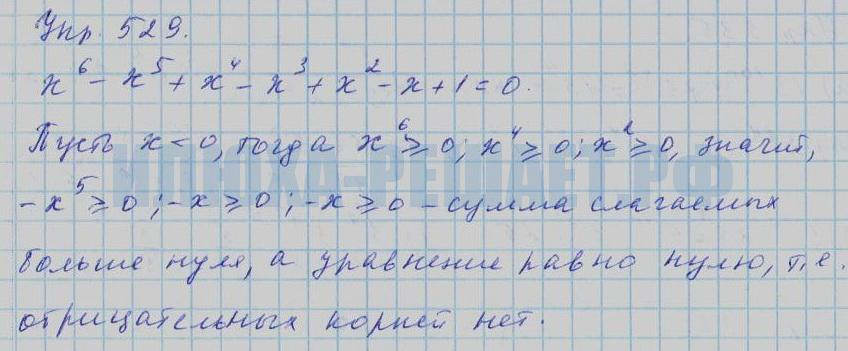 Упр. 529.
x⁶ - x⁵ + x⁴ - x³ + x² - x + 1 = 0.
Пусть x < 0, тогда x⁶ ≥ 0; x⁴ ≥ 0; x² ≥ 0, значит,
ИЛЮХА-РЕШАЕТ.РФ
-x⁵ ≥ 0; -x ≥ 0; -x ≥ 0 - сумма слагаемых
больше нуля, а уравнение равно нулю, т.е.
отрицательных корней нет.